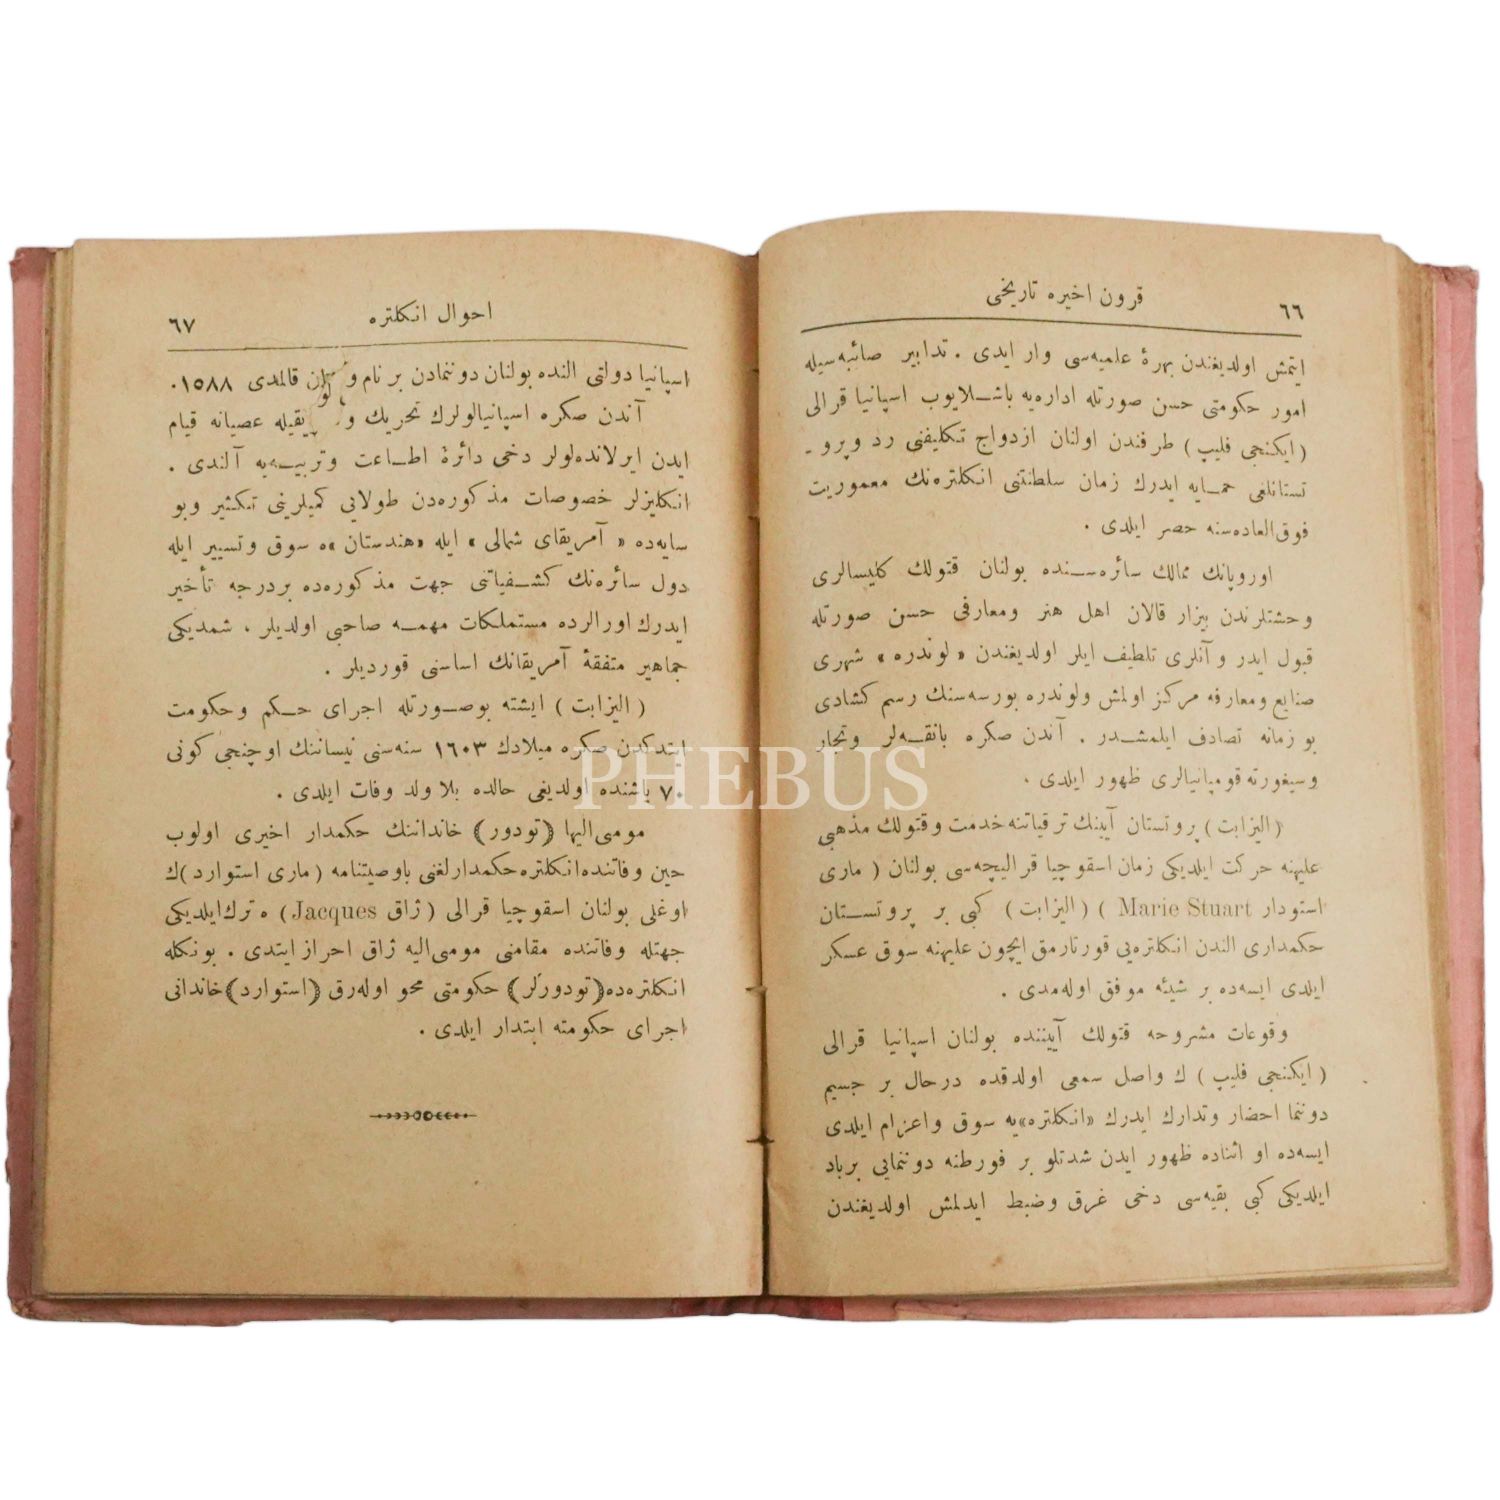 ٦٦
قرون اخیره تاریخی
ایتمش اولدیغندن بهرهٔ علمیه‌سی وار ایدی . تدابیر صائبه‌سیله
امور حکومتی حسن صورتله اداره‌یه باشلایوب اسپانیا قرالی
( ایکنجی فلیپ ) طرفندن اولنان ازدواج تکلیفنی رد وپرو ـ
تستانلغی حمایه ایدرك زمان سلطنتنی انکلتره‌نك معموریت
فوق‌العاده‌سنه حصر ایلدی .
اوروپانك ممالك سائره‌سنده بولنان قتولك کلیسالری
وحشتلرندن بیزار قالان اهل هنر ومعارفی حسن صورتله
قبول ایدر و آنلری تلطیف ایلر اولدیغندن « لوندره » شهری
صنایع ومعارفه مرکز اولمش ولوندره بورسه‌سنك رسم کشادی
بو زمانه تصادف ایلمشدر . آندن صکره بانقه‌لر وتجار
وسیغورته قومپانیالری ظهور ایلدی .
( الیزابت ) پروتستان آیینك ترقیاتنه خدمت وقتولك مذهبی
علیهنه حرکت ایلدیکی زمان اسقوچیا قرالیچه‌سی بولنان ( ماری
استودار Marie Stuart ) ( الیزابت ) کبی بر پروتستان
حکمداری الندن انکلتره‌یی قورتارمق ایچون علیهنه سوق عسکر
ایلدی ایسه‌ده بر شیئه موفق اوله‌مدی .
وقوعات مشروحه قتولك آییننده بولنان اسپانیا قرالی
( ایکنجی فلیپ ) ك واصل سمعی اولدقده درحال بر جسیم
دوننما احضار وتدارك ایدرك «انکلتره»یه سوق واعزام ایلدی
ایسه‌ده او اثناده ظهور ایدن شدتلو بر فورطنه دوننمایی برباد
ایلدیکی کبی بقیه‌سی دخی غرق وضبط ایدلمش اولدیغندن
احوال انکلتره
٦٧
اسپانیا دولتی النده بولنان دوننمادن بر نام و قالمدی ١٥٨٨.
آندن صکره اسپانیالولرك تحریك و عصیانه قیام
ایدن ایرلانده‌لولر دخی دائرهٔ اطاعت وتربیه‌یه آلندی .
انکلیزلر خصوصات مذکوره‌دن طولایی کمیلرینی تکثیر وبو
سایه‌ده « آمریقای شمالی » ایله «هندستان »ه سوق وتسییر ایله
دول سائره‌نك کشفیاتنی جهت مذکوره‌ده بردرجه تأخیر
ایدرك اورالرده مستملکات مهمه صاحبی اولدیلر ، شمدیکی
جماهیر متفقهٔ آمریقانك اساسنی قوردیلر .
( الیزابت ) ایشته بوصورتله اجرای حکم وحکومت
ایتدکدن صکره میلادك ١٦٠٣ سنه‌سی نیساننك اوچنجی کونی
٧٠ یاشنده اولدیغی حالده بلا ولد وفات ایلدی .
مومی‌الیها (تودور) خانداننك حکمدار اخیری اولوب
حین وفاتنده انکلتره حکمدارلغنی باوصیتنامه ( ماری استوارد )ك
اوغلی بولنان اسقوچیا قرالی ( ژاق Jacques) ه ترك ایلدیکی
جهتله وفاتنده مقامنی مومی‌الیه ژاق احراز ایتدی . بونکله
انکلتره‌ده (تودورلر) حکومتی محو اوله‌رق (استوارد) خاندانی
اجرای حکومته ابتدار ایلدی .
PHEBUS